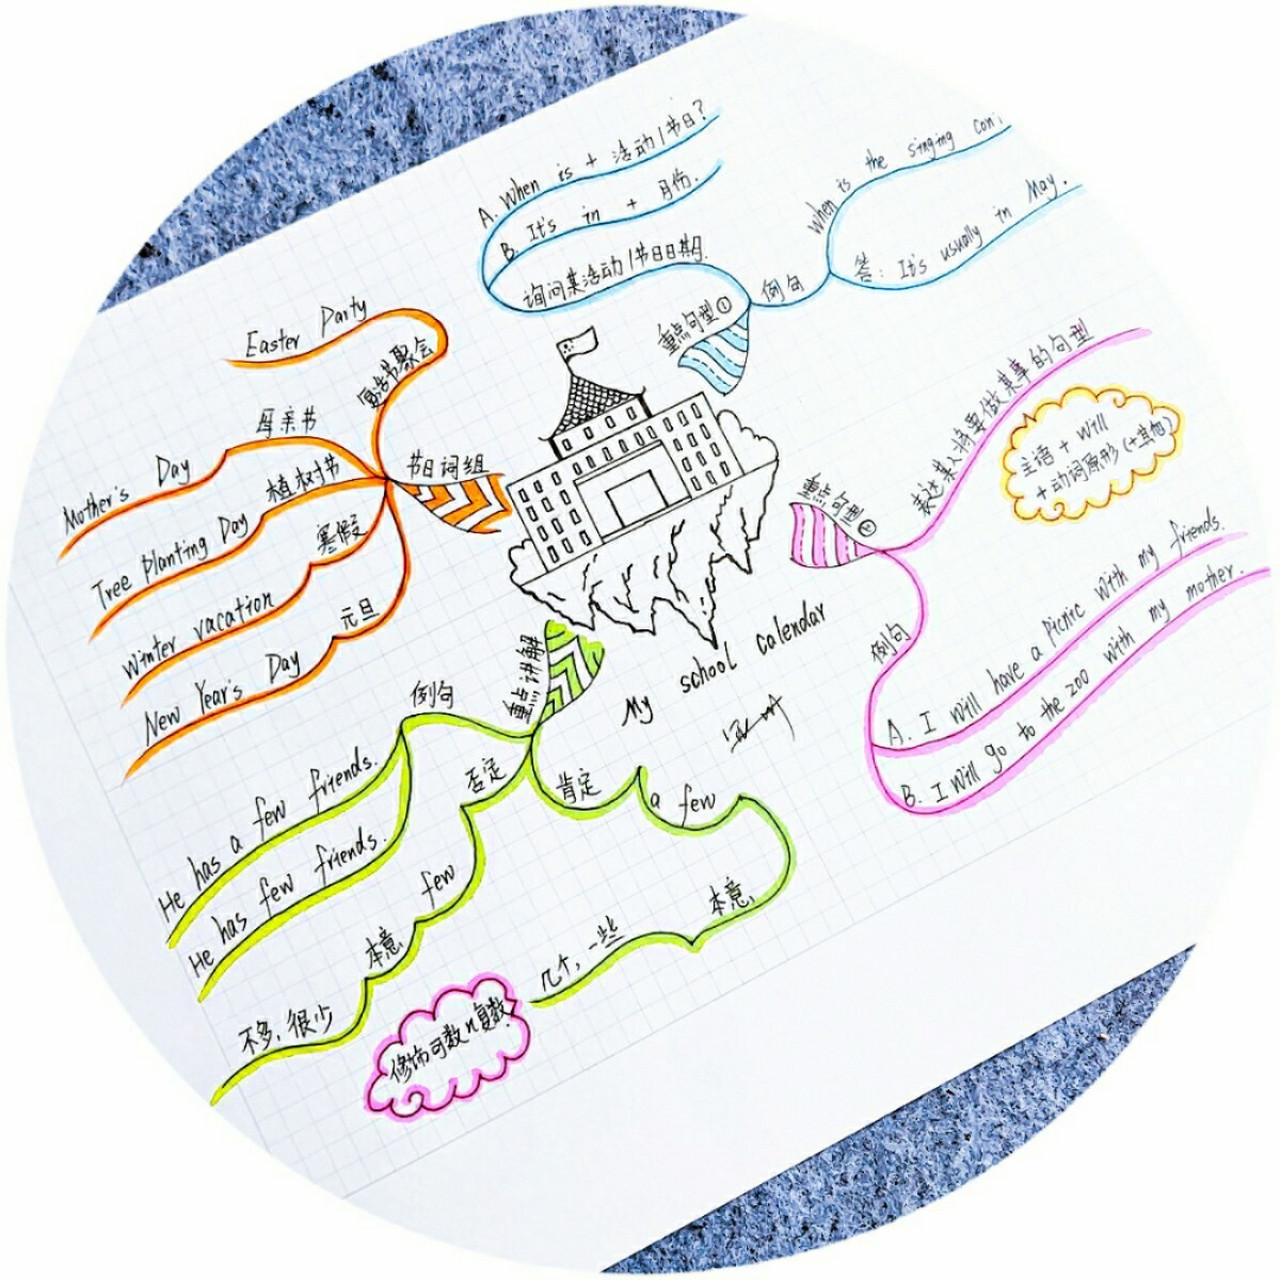 My school calendar
重点句型①
询问某活动/节日日期.
A. When is + 活动/节日?
B. It's in + 月份.
例句
When is the singing
答: It's usually in May.
重点句型②
表达某人将要做某事的句型
主语 + will
+ 动词原形 (+其他)
例句
A. I will have a picnic with my friends.
B. I will go to the zoo with my mother.
重点讲解
肯定
a few
本意
几个, 一些
否定
few
本意
不多, 很少
例句
He has a few friends.
He has few friends.
修饰可数n复数.
节日词组
复活节聚会
Easter Party
母亲节
Mother's Day
植树节
Tree planting Day
寒假
Winter vacation
元旦
New Year's Day